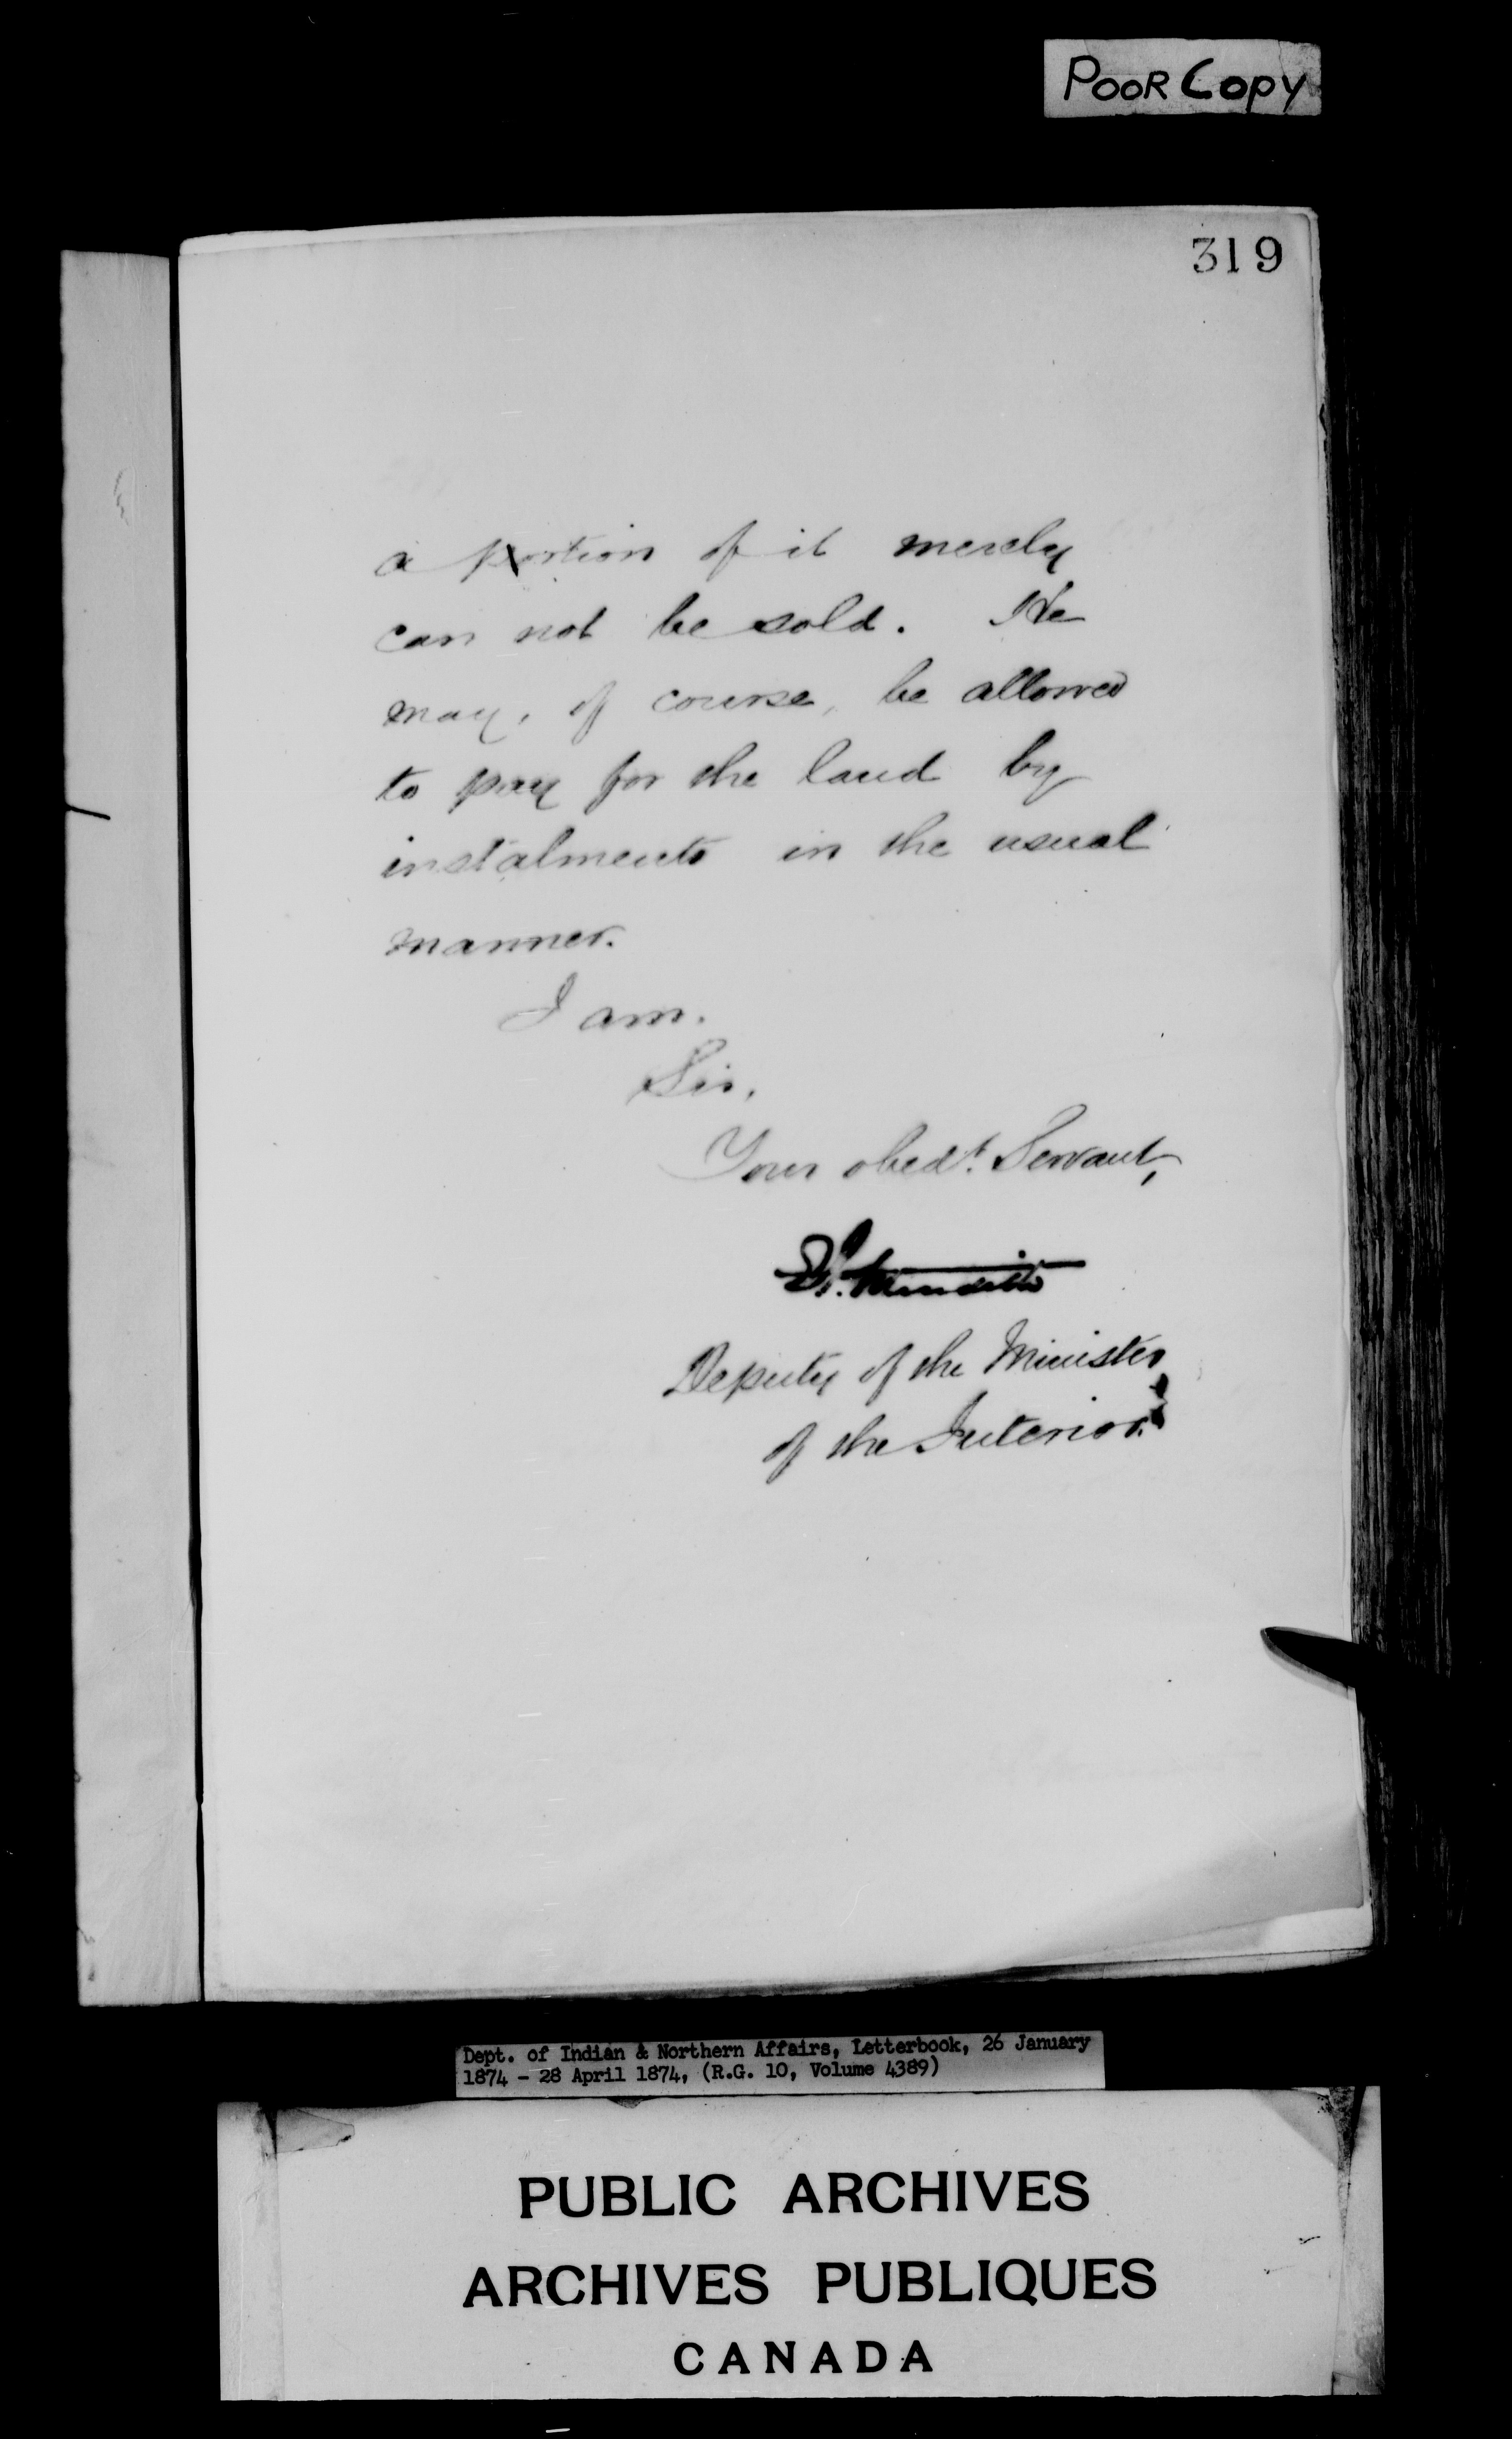 POOR COPY
319
a portion of it merely
can not be sold. He
may, of course, be allowed
to pay for the land by
instalments in the usual
manner.
I am.
Sir,
Your obedt. Servant,
E. Meredith
Deputy of the Minister
of the Interior.
Dept. of Indian & Northern Affairs, Letterbook, 26 January
1874 - 28 April 1874, (R.G. 10, Volume 4389)
PUBLIC ARCHIVES
ARCHIVES PUBLIQUES
CANADA